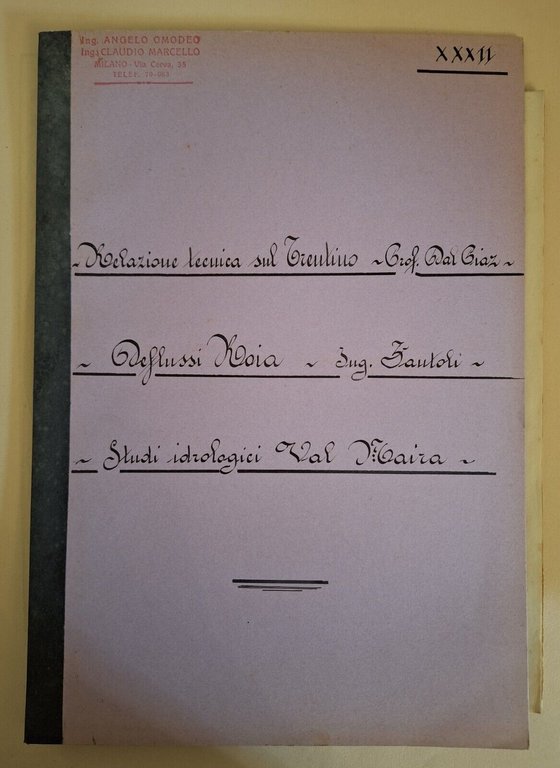 Ing. ANGELO OMODEO
Ing. CLAUDIO MARCELLO
MILANO - Via Cerva, 35
TELEF. 70-063
XXXII
~ Relazione tecnica sul Trentino ~ Prof. Dal Piaz ~
~ Deflussi Roia ~ Ing. Fantoli ~
~ Studi idrologici Val Maira ~